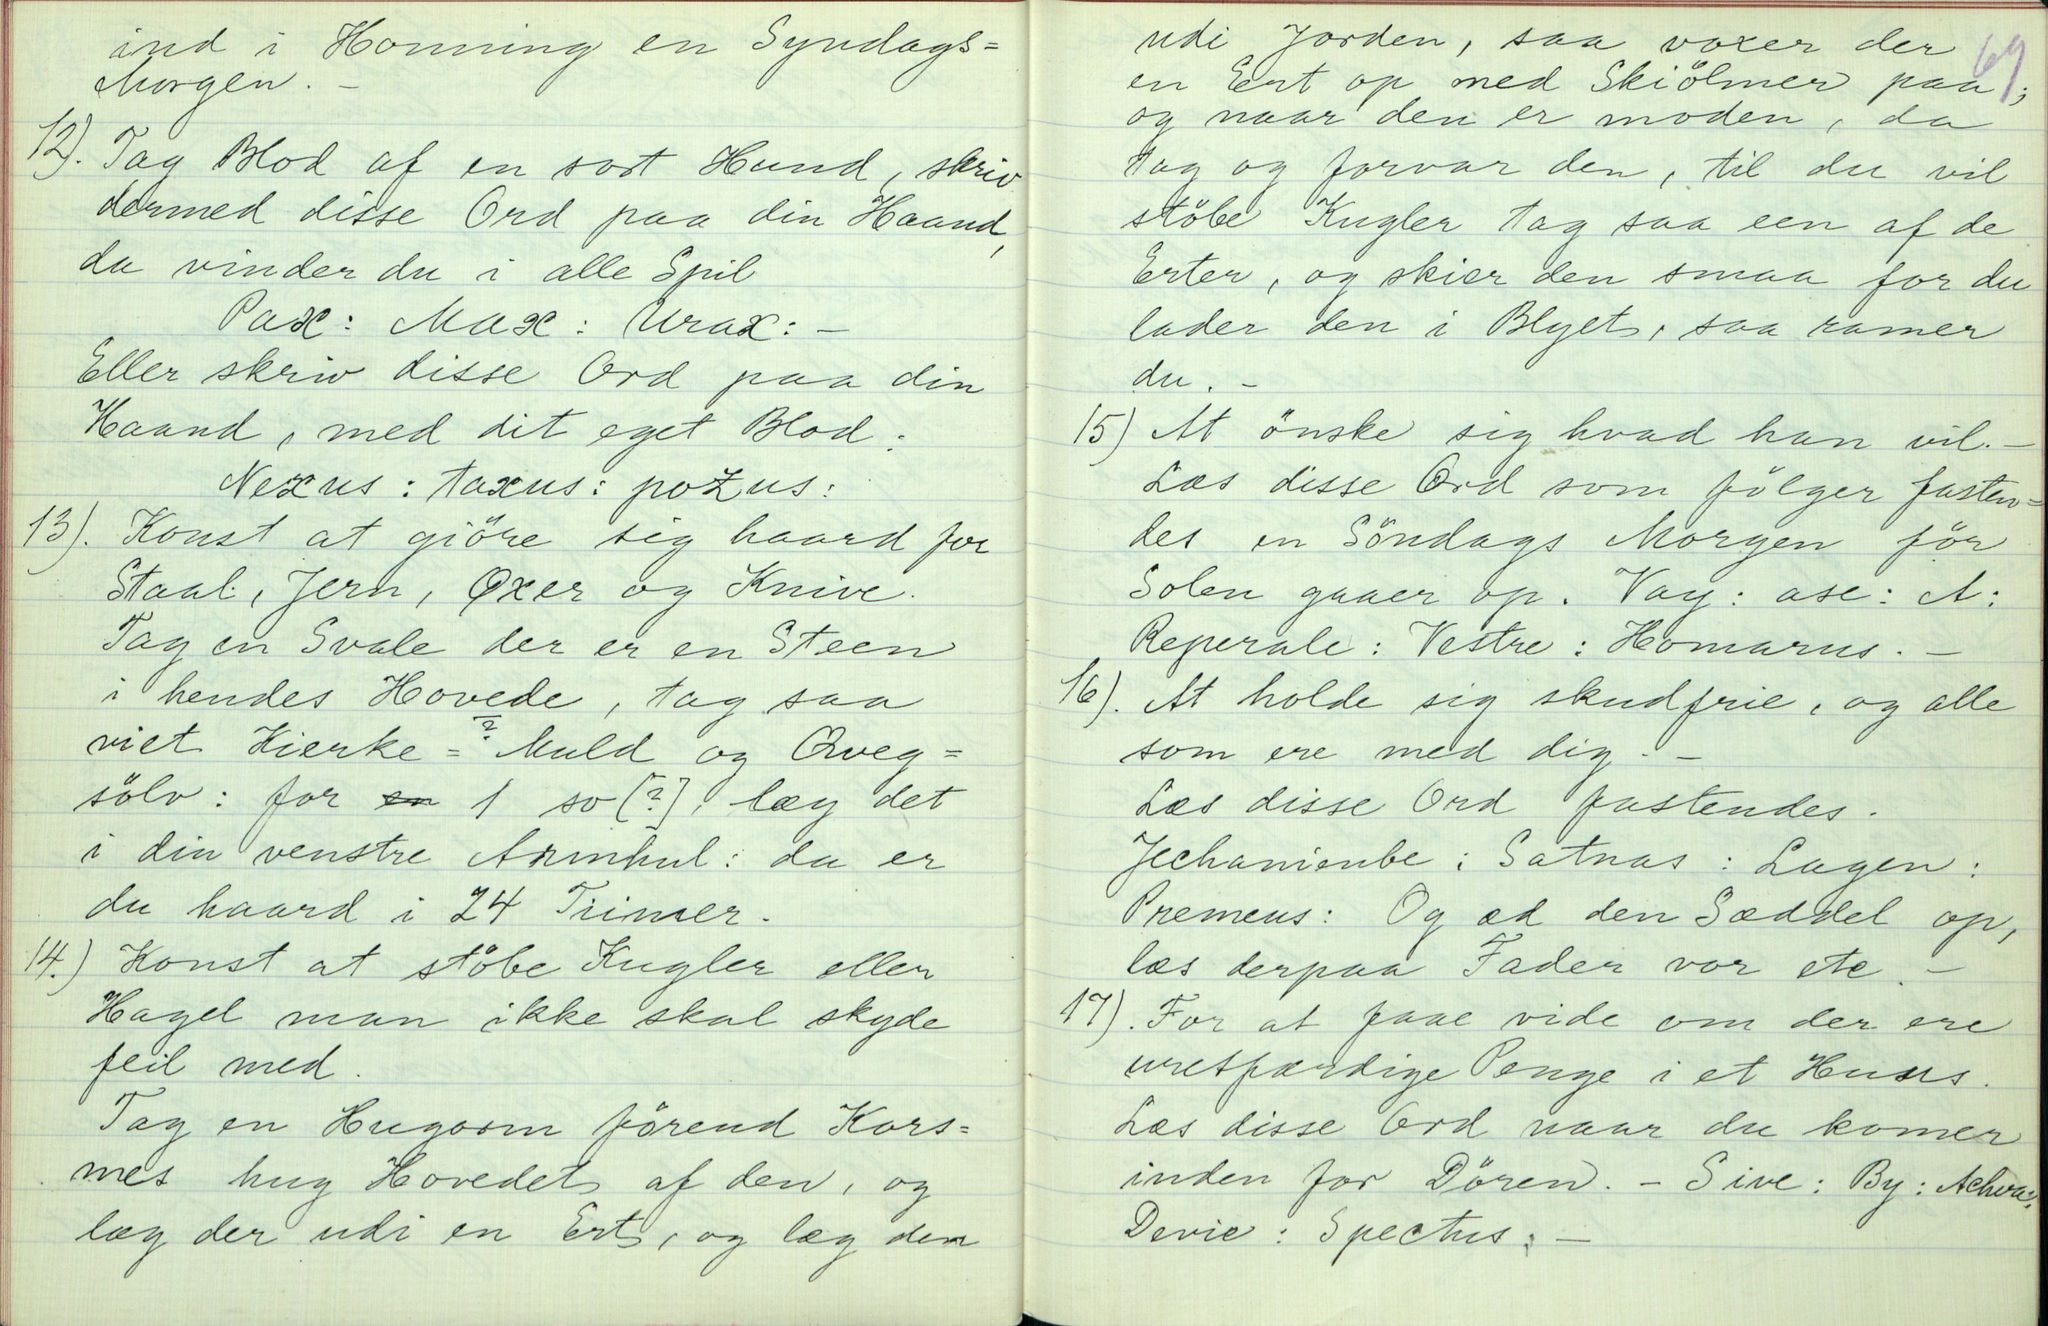 ind i Honning en Syndags=
Morgen. –
12). Tag Blod af en sort Hund, skriv
dermed disse Ord paa din Haand,
da vinder du i alle Spil
Pax: Max: Urax: –
Eller skriv disse Ord paa din
Haand, med dit eget Blod:
Nexus: taxus: pozus:
13). Konst at giöre sig haard for
Staal, Jern, Öxer og Knive.
Tag en Svale der er en Steen
i hendes Hovede, tag saa
viet Kierke=? Muld og Qveg=
sölv: for en 1 so [?], læg det
i din venstre Armhul: da er
du haard i 24 Timer.
14.) Konst at stöbe Kugler eller
Hagel man ikke skal skyde
feil med.
Tag en Hugorm förend Kors=
mes hug Hovedet af den, og
læg der udi en Ert, og læg den
69
udi Jorden, saa voxer der
en Ert op med Skiölmer paa;
og naar den er moden, da
tag og forvar den, til du vil
stöbe Kugler tag saa een af de
Erter, og skier den smaa for du
lader den i Blyet, saa ramer
du. –
15) At önske sig hvad han vil. –
Læs disse Ord som fölger fasten=
des en Söndags Morgen för
Solen gaaer op. Vay: ase: A:
Reperale: Vestre: Homarus. –
16). At holde sig skudfrie, og alle
som ere med dig. –
Læs disse Ord fastendes.
Jechanienbe: Satnas: Lagen:
Premeus: Og æd den Sæddel op,
læs derpaa Fader vor etc. –
17). For at faae vide om der ere
uretfærdige Penge i et Huus.
Læs disse Ord naar du komer
inden for Dören. – Sive: By: Achva:,
Devie: Spectus: –